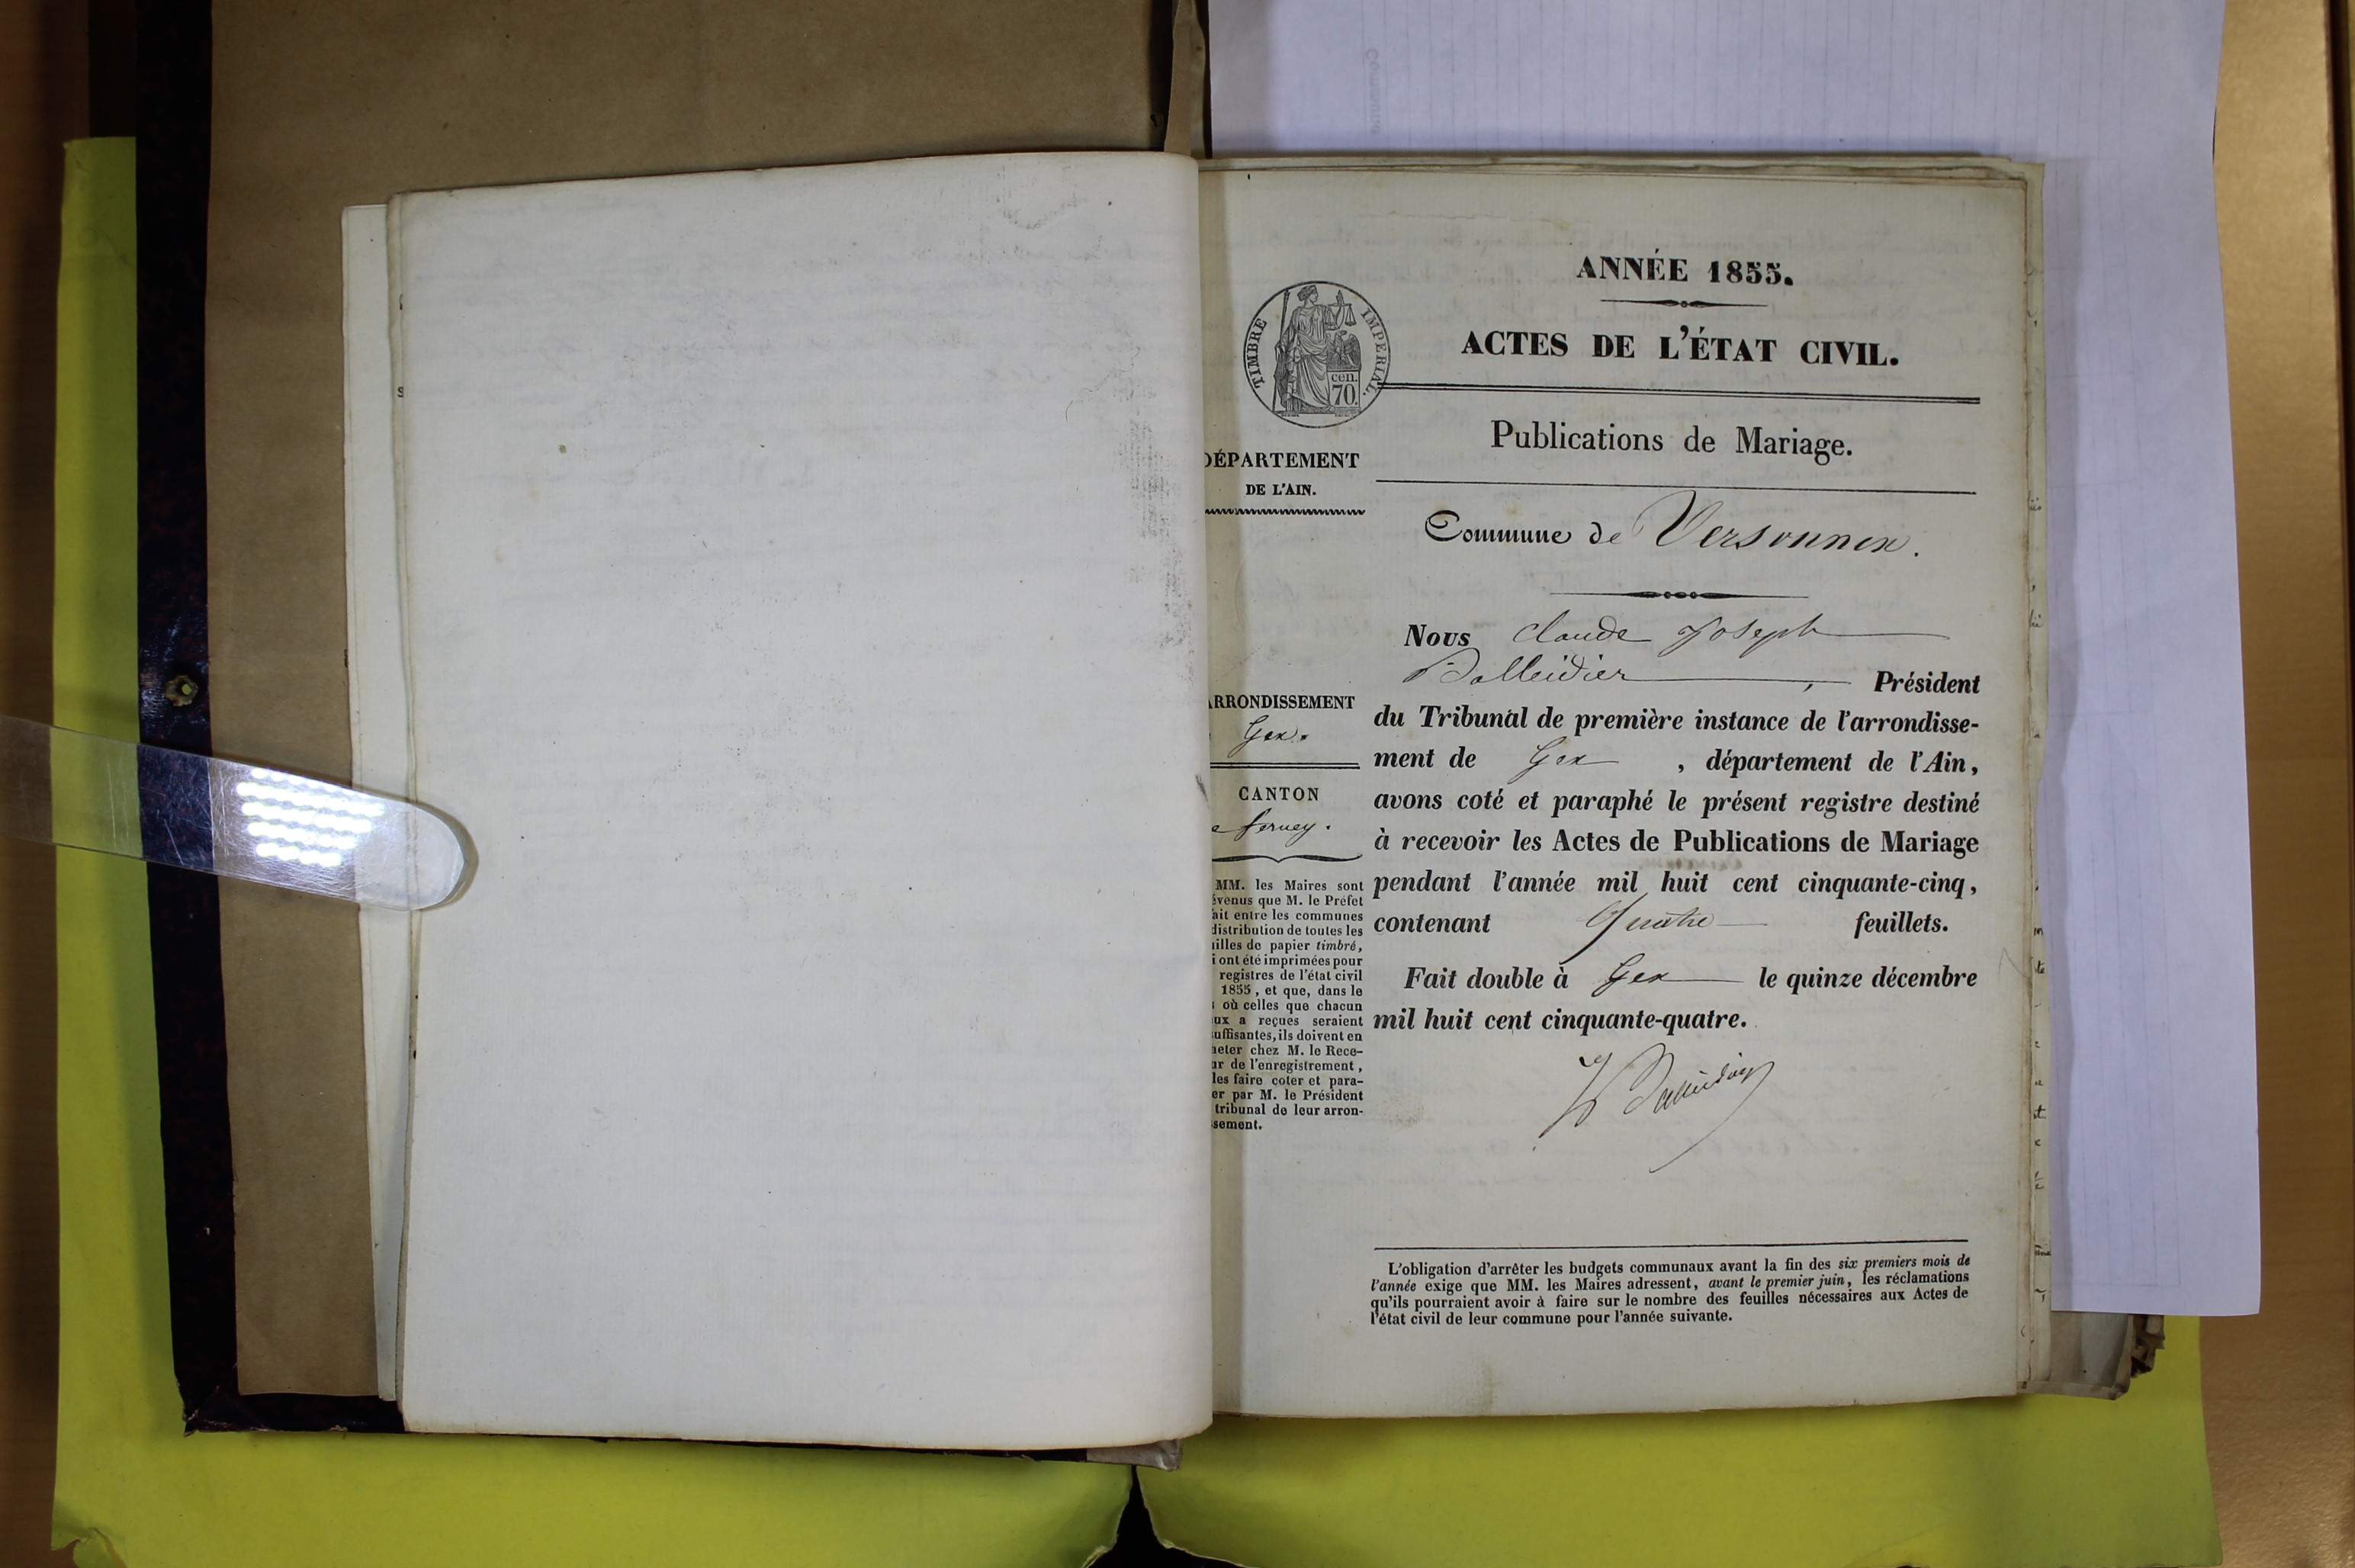 ANNÉE 1855.
ACTES DE L'ÉTAT CIVIL.
TIMBRE IMPERIAL.
cen.
70.
Publications de Mariage.
DÉPARTEMENT
DE L'AIN.
Commune de Versonnex.
Nous Claude Joseph
Balleidier, Président
du Tribunal de première instance de l'arrondisse-
ment de Gex, département de l'Ain,
avons coté et paraphé le présent registre destiné
à recevoir les Actes de Publications de Mariage
pendant l'année mil huit cent cinquante-cinq,
contenant Quatre feuillets.
Fait double à Gex le quinze décembre
mil huit cent cinquante-quatre.
Balleidier
ARRONDISSEMENT
Gex.
CANTON
e ferney.
MM. les Maires sont
évenus que M. le Préfet
ait entre les communes
distribution de toutes les
uilles de papier timbré,
i ont été imprimées pour
registres de l'état civil
1855, et que, dans le
où celles que chacun
ux a reçues seraient
suffisantes, ils doivent en
heter chez M. le Rece-
ur de l'enregistrement,
les faire coter et para-
er par M. le Président
tribunal de leur arron-
sement.
L'obligation d'arrêter les budgets communaux avant la fin des six premiers mois de
l'année exige que MM. les Maires adressent, avant le premier juin, les réclamations
qu'ils pourraient avoir à faire sur le nombre des feuilles nécessaires aux Actes de
l'état civil de leur commune pour l'année suivante.